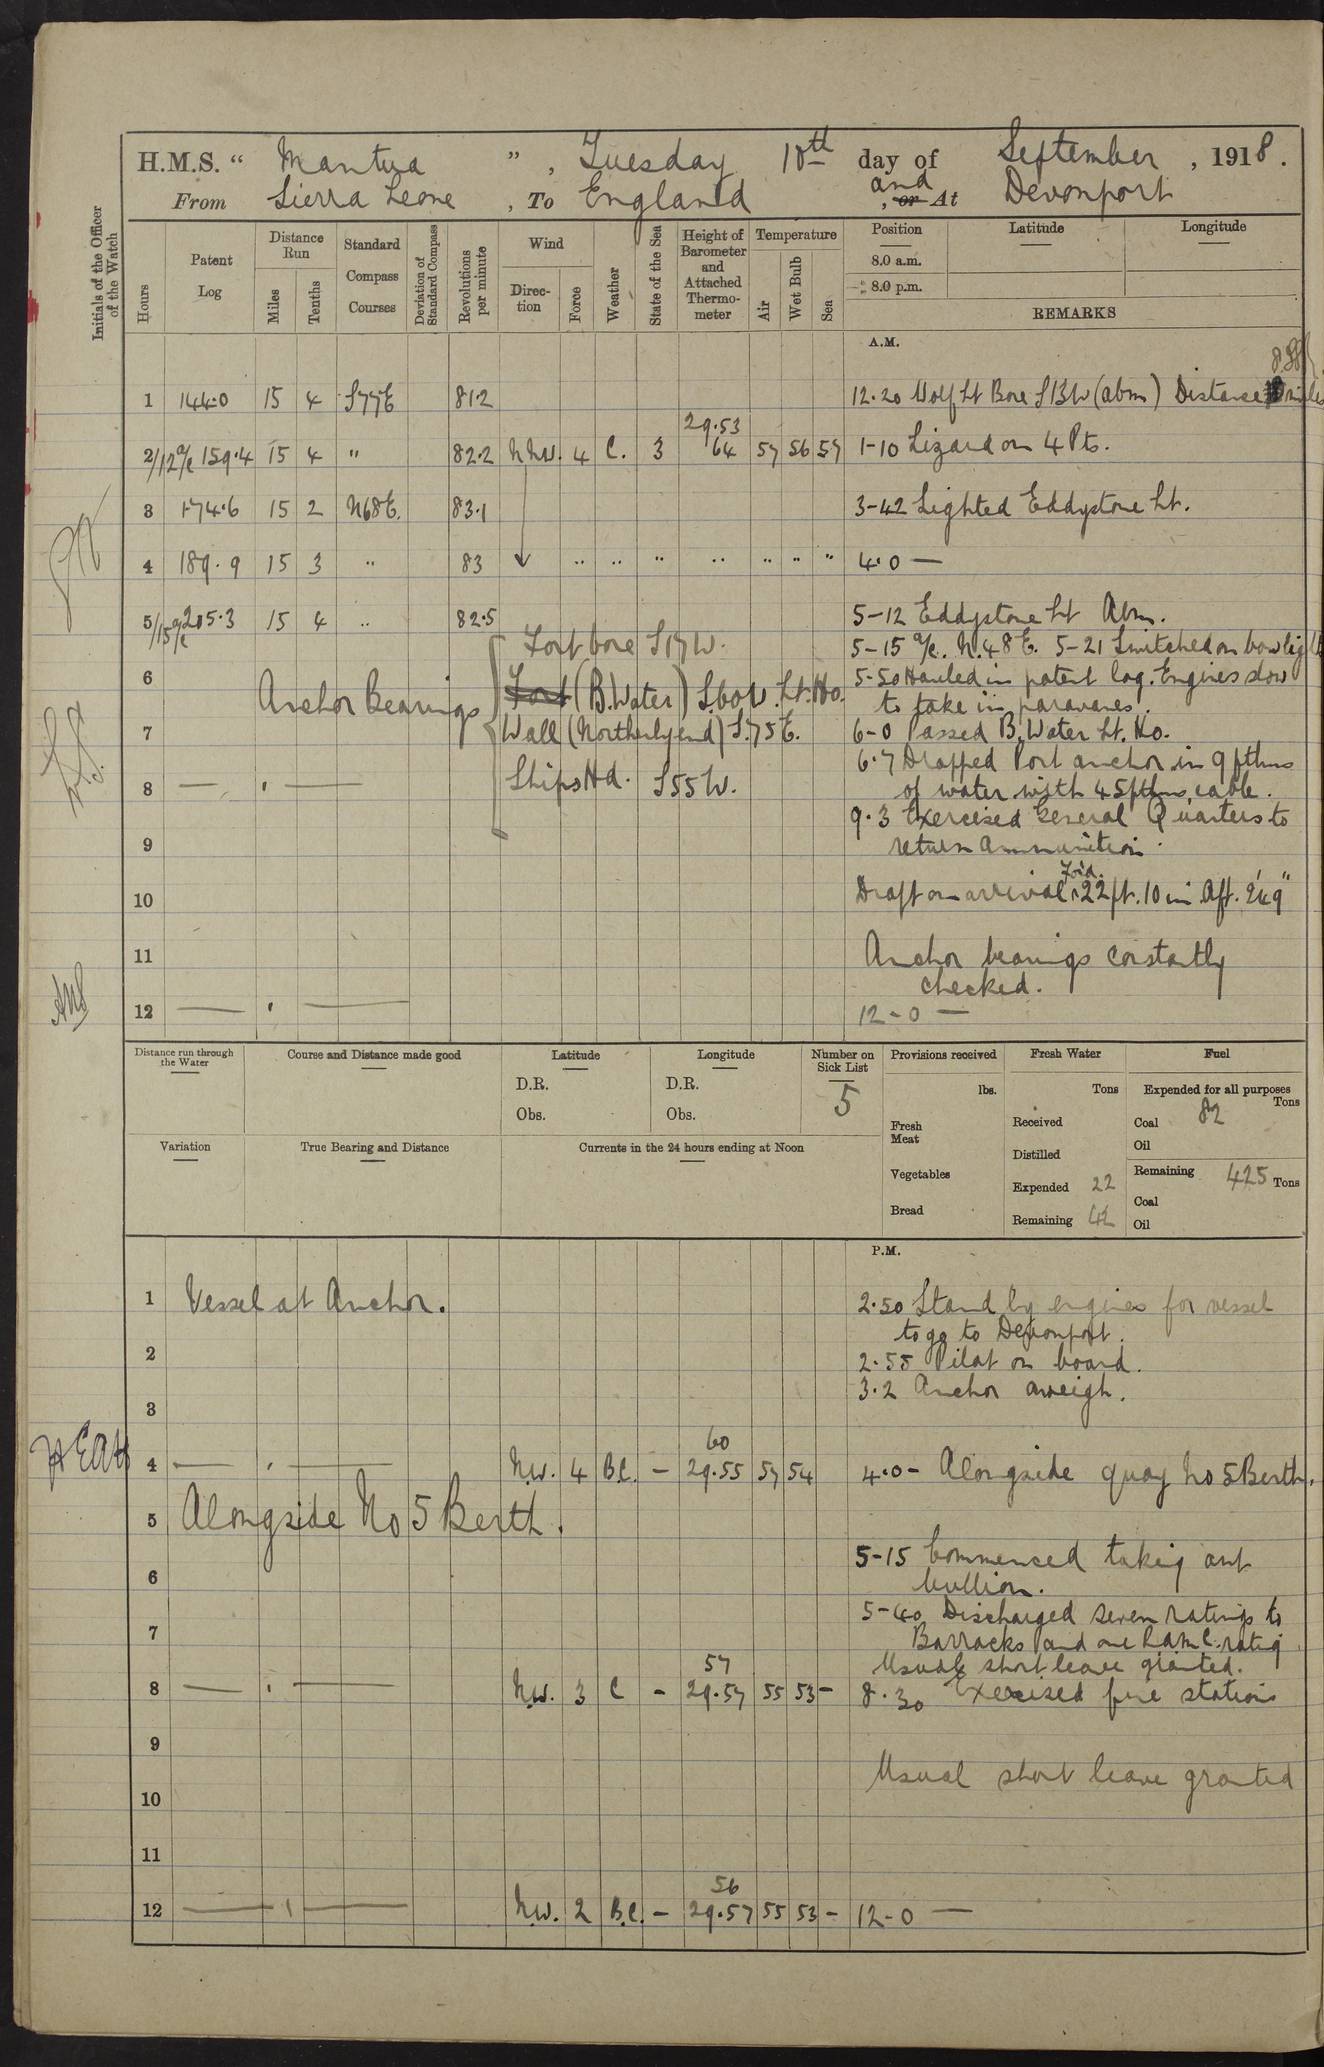 H.M.S. “ Mantua ” , Tuesday 10th day of September , 1918.
From Sierra Leone , To England and , or At Devonport
Initials of the Officer of the Watch
Hours Patent Log Distance Run Miles Tenths Standard Compass Courses Deviation of Standard Compass Revolutions per minute Wind Direction Force Weather State of the Sea Height of Barometer and Attached Thermometer Temperature Air Wet Bulb Sea Position 8.0 a.m. 8.0 p.m. Latitude Longitude
REMARKS
A.M.
1 144.0 15 4 S77E 81.2 12.20 Wolf Lt Bore S13W (abm) Distance miles
29.53
2/12 a/c 159.4 15 4 " 82.2 NNW. 4 C. 3 64 57 56 57 1-10 Lizard on 4 Pts.
3 174.6 15 2 N68E. 83.1 3-42 Sighted Eddystone Lt.
4 189.9 15 3 " 83 " " " " " " " 4.0 —
5/15 a/c 205.3 15 4 " 82.5 5-12 Eddystone Lt Abm.
Fort bore S17W. 5-15 a/c. N.48E. 5-21 Switched on bow lights
6 Anchor Bearings (B.Water) S.60W. Lt. Ho. 5-50 Hauled in patent log. Engines slow
to take in paravanes.
7 Wall (Northerly end) S.75E. 6-0 Passed B. Water Lt. Ho.
6.7 Dropped Port anchor in 9 fthms
8 — " — Ships Hd. S55W. of water with 45 fthms cable.
9.3 Exercised General Quarters to
9 return ammunition.
10 Draft on arrival Fo'd. 22ft. 10in Aft. 24' 9"
11 Anchor bearings constantly
checked.
12 — " — 12-0 —
Distance run through the Water Course and Distance made good Latitude Longitude Number on Sick List Provisions received Fresh Water Fuel
D.R. D.R. 5 lbs. Tons Expended for all purposes Tons
Obs. Obs. Fresh Meat Received Coal 82
Oil
Variation True Bearing and Distance Currents in the 24 hours ending at Noon Distilled
Vegetables Expended 22 Remaining 425 Tons
Coal
Bread Remaining 42 Oil
P.M.
1 Vessel at Anchor. 2.50 Stand by engines for vessel
to go to Devonport.
2 2.55 Pilot on board.
3.2 Anchor aweigh.
3
60
4 — " — N.W. 4 B.C. — 29.55 57 54 4.0 - Alongside quay No 5 Berth.
5 Alongside No 5 Berth.
5-15 Commenced taking out
6 bullion.
5-40 Discharged seven ratings to
7 Barracks and one R.A.M.C. rating
57 Usual short leave granted.
8 — " — N.W. 3 C — 29.57 55 53 — 8.30 Exercised fire stations
9
Usual short leave granted
10
11
56
12 — " — N.W. 2 B.C. — 29.57 55 53 — 12-0 —